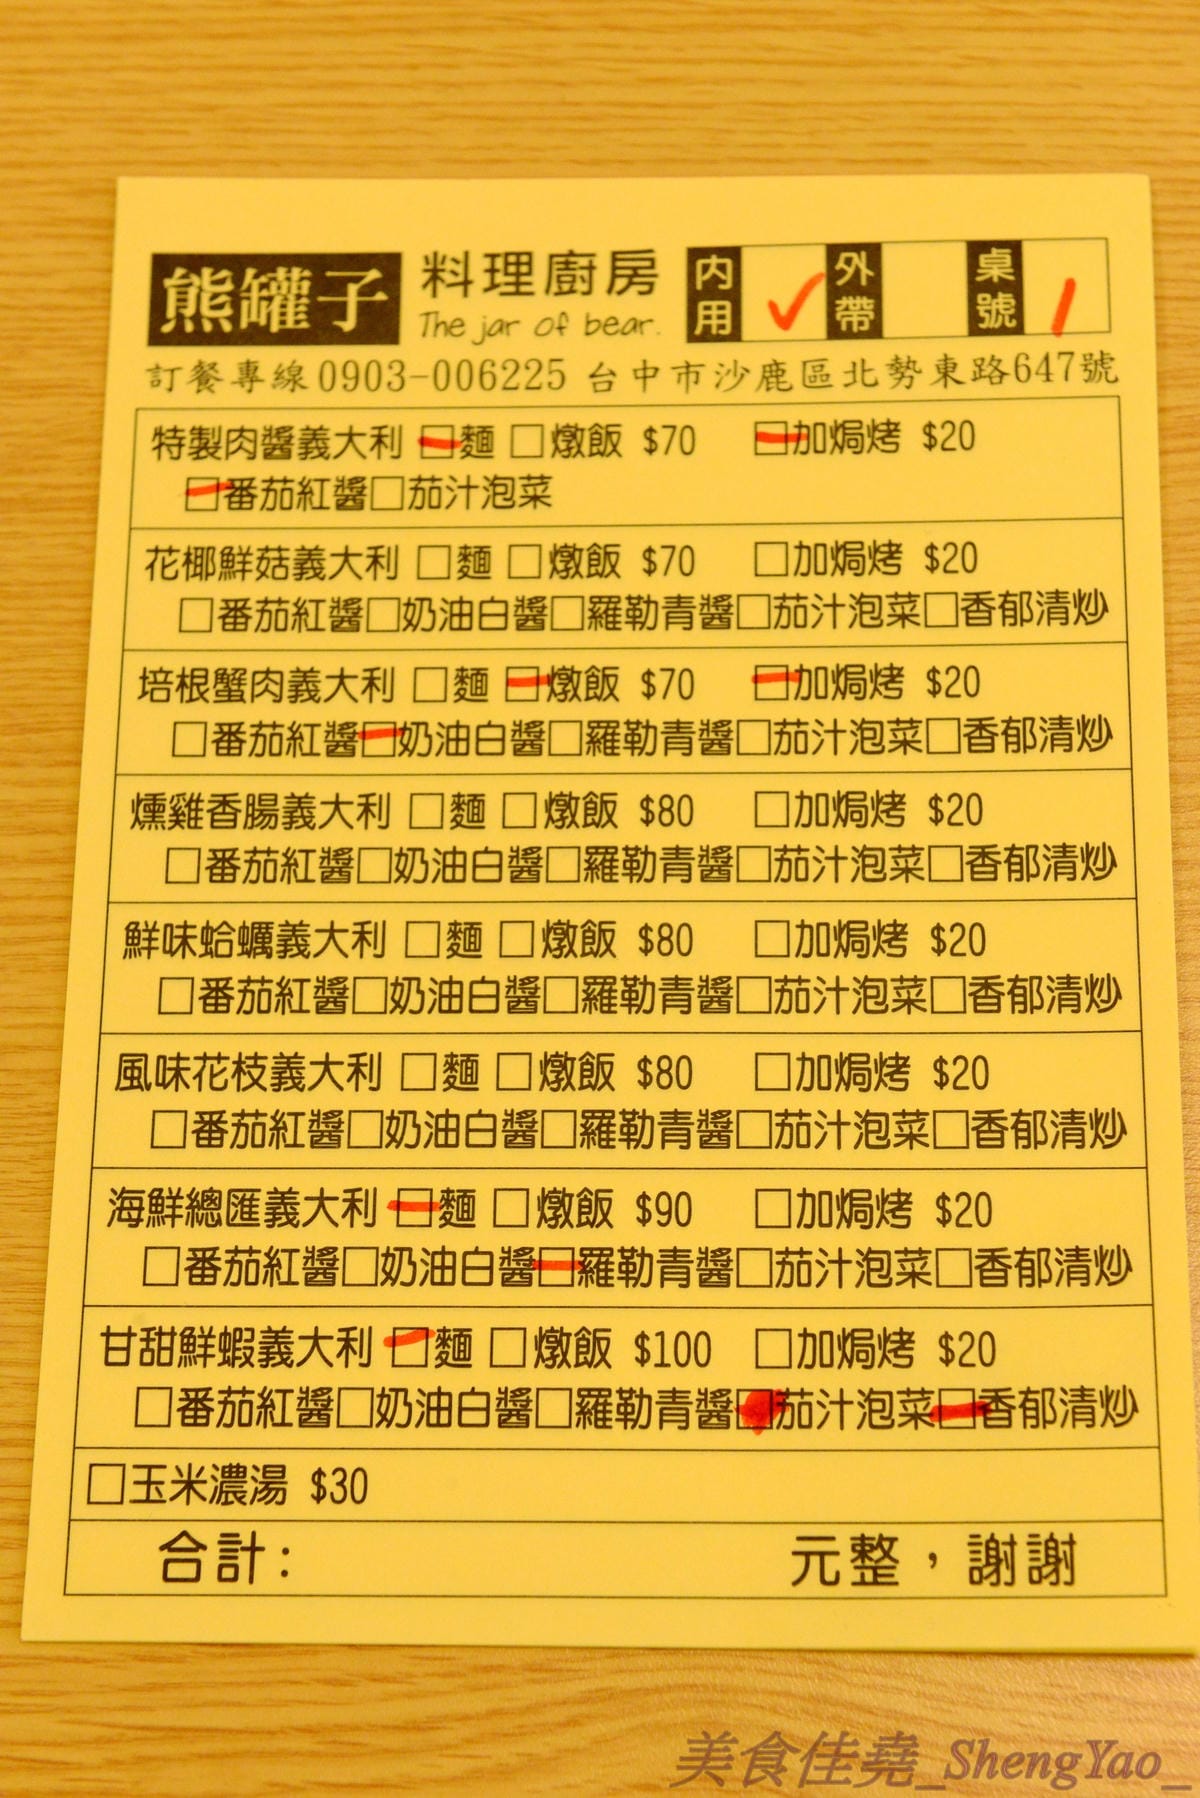 熊罐子 料理廚房 內用 ✓ 外帶 桌號 1
The jar of bear.
訂餐專線0903-006225 台中市沙鹿區北勢東路647號
特製肉醬義大利 □麵 □燉飯 $70 □加焗烤 $20
□番茄紅醬□茄汁泡菜
花椰鮮菇義大利 □麵 □燉飯 $70 □加焗烤 $20
□番茄紅醬□奶油白醬□羅勒青醬□茄汁泡菜□香郁清炒
培根蟹肉義大利 □麵 □燉飯 $70 □加焗烤 $20
□番茄紅醬□奶油白醬□羅勒青醬□茄汁泡菜□香郁清炒
燻雞香腸義大利 □麵 □燉飯 $80 □加焗烤 $20
□番茄紅醬□奶油白醬□羅勒青醬□茄汁泡菜□香郁清炒
鮮味蛤蠣義大利 □麵 □燉飯 $80 □加焗烤 $20
□番茄紅醬□奶油白醬□羅勒青醬□茄汁泡菜□香郁清炒
風味花枝義大利 □麵 □燉飯 $80 □加焗烤 $20
□番茄紅醬□奶油白醬□羅勒青醬□茄汁泡菜□香郁清炒
海鮮總匯義大利 □麵 □燉飯 $90 □加焗烤 $20
□番茄紅醬□奶油白醬□羅勒青醬□茄汁泡菜□香郁清炒
甘甜鮮蝦義大利 □麵 □燉飯 $100 □加焗烤 $20
□番茄紅醬□奶油白醬□羅勒青醬□茄汁泡菜□香郁清炒
□玉米濃湯 $30
合計: 元整，謝謝
美食佳堯_ShengYao_